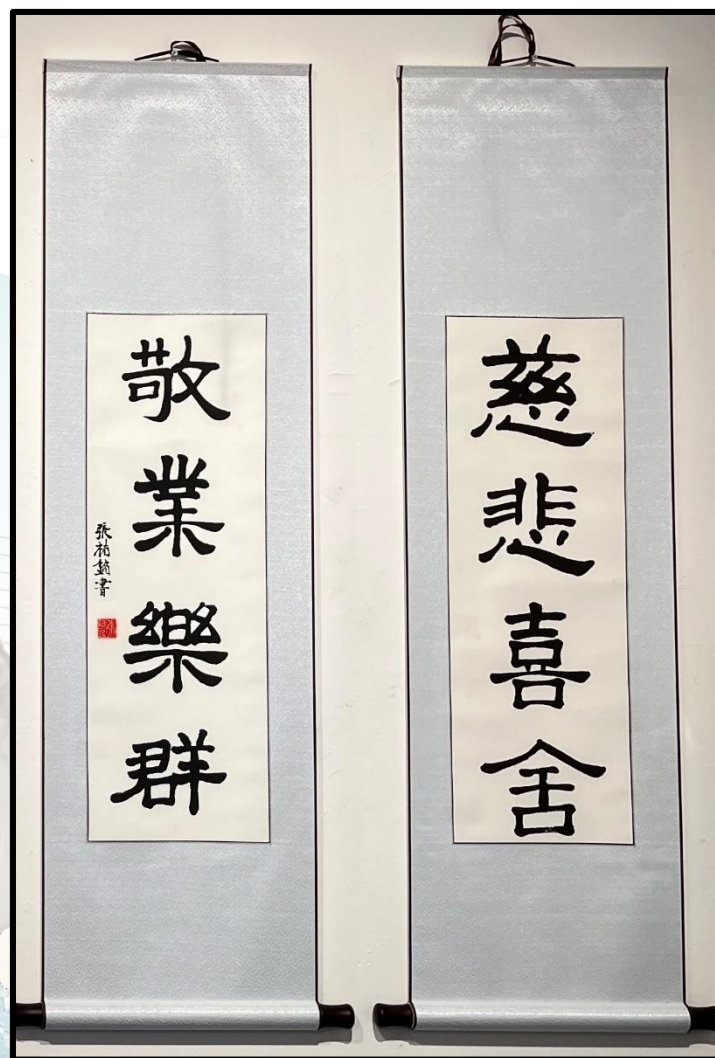 慈悲喜舍
敬業樂群
張柏書